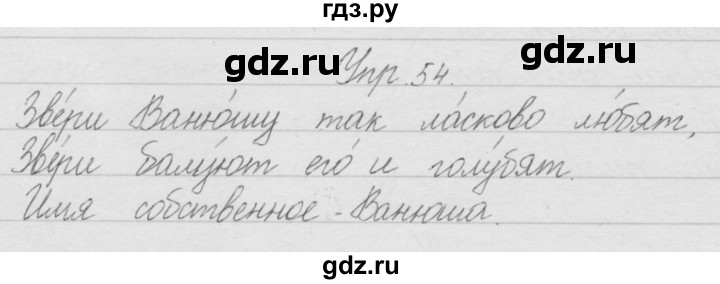 гдз.ру
gdz.ru gdz.ru
Упр. 54.
Зве́ри Ваню́шу так ла́сково лю́бят,
Зве́ри балу́ют его́ и голу́бят.
Имя собственное - Ванюша.
gdz.ru gdz.ru